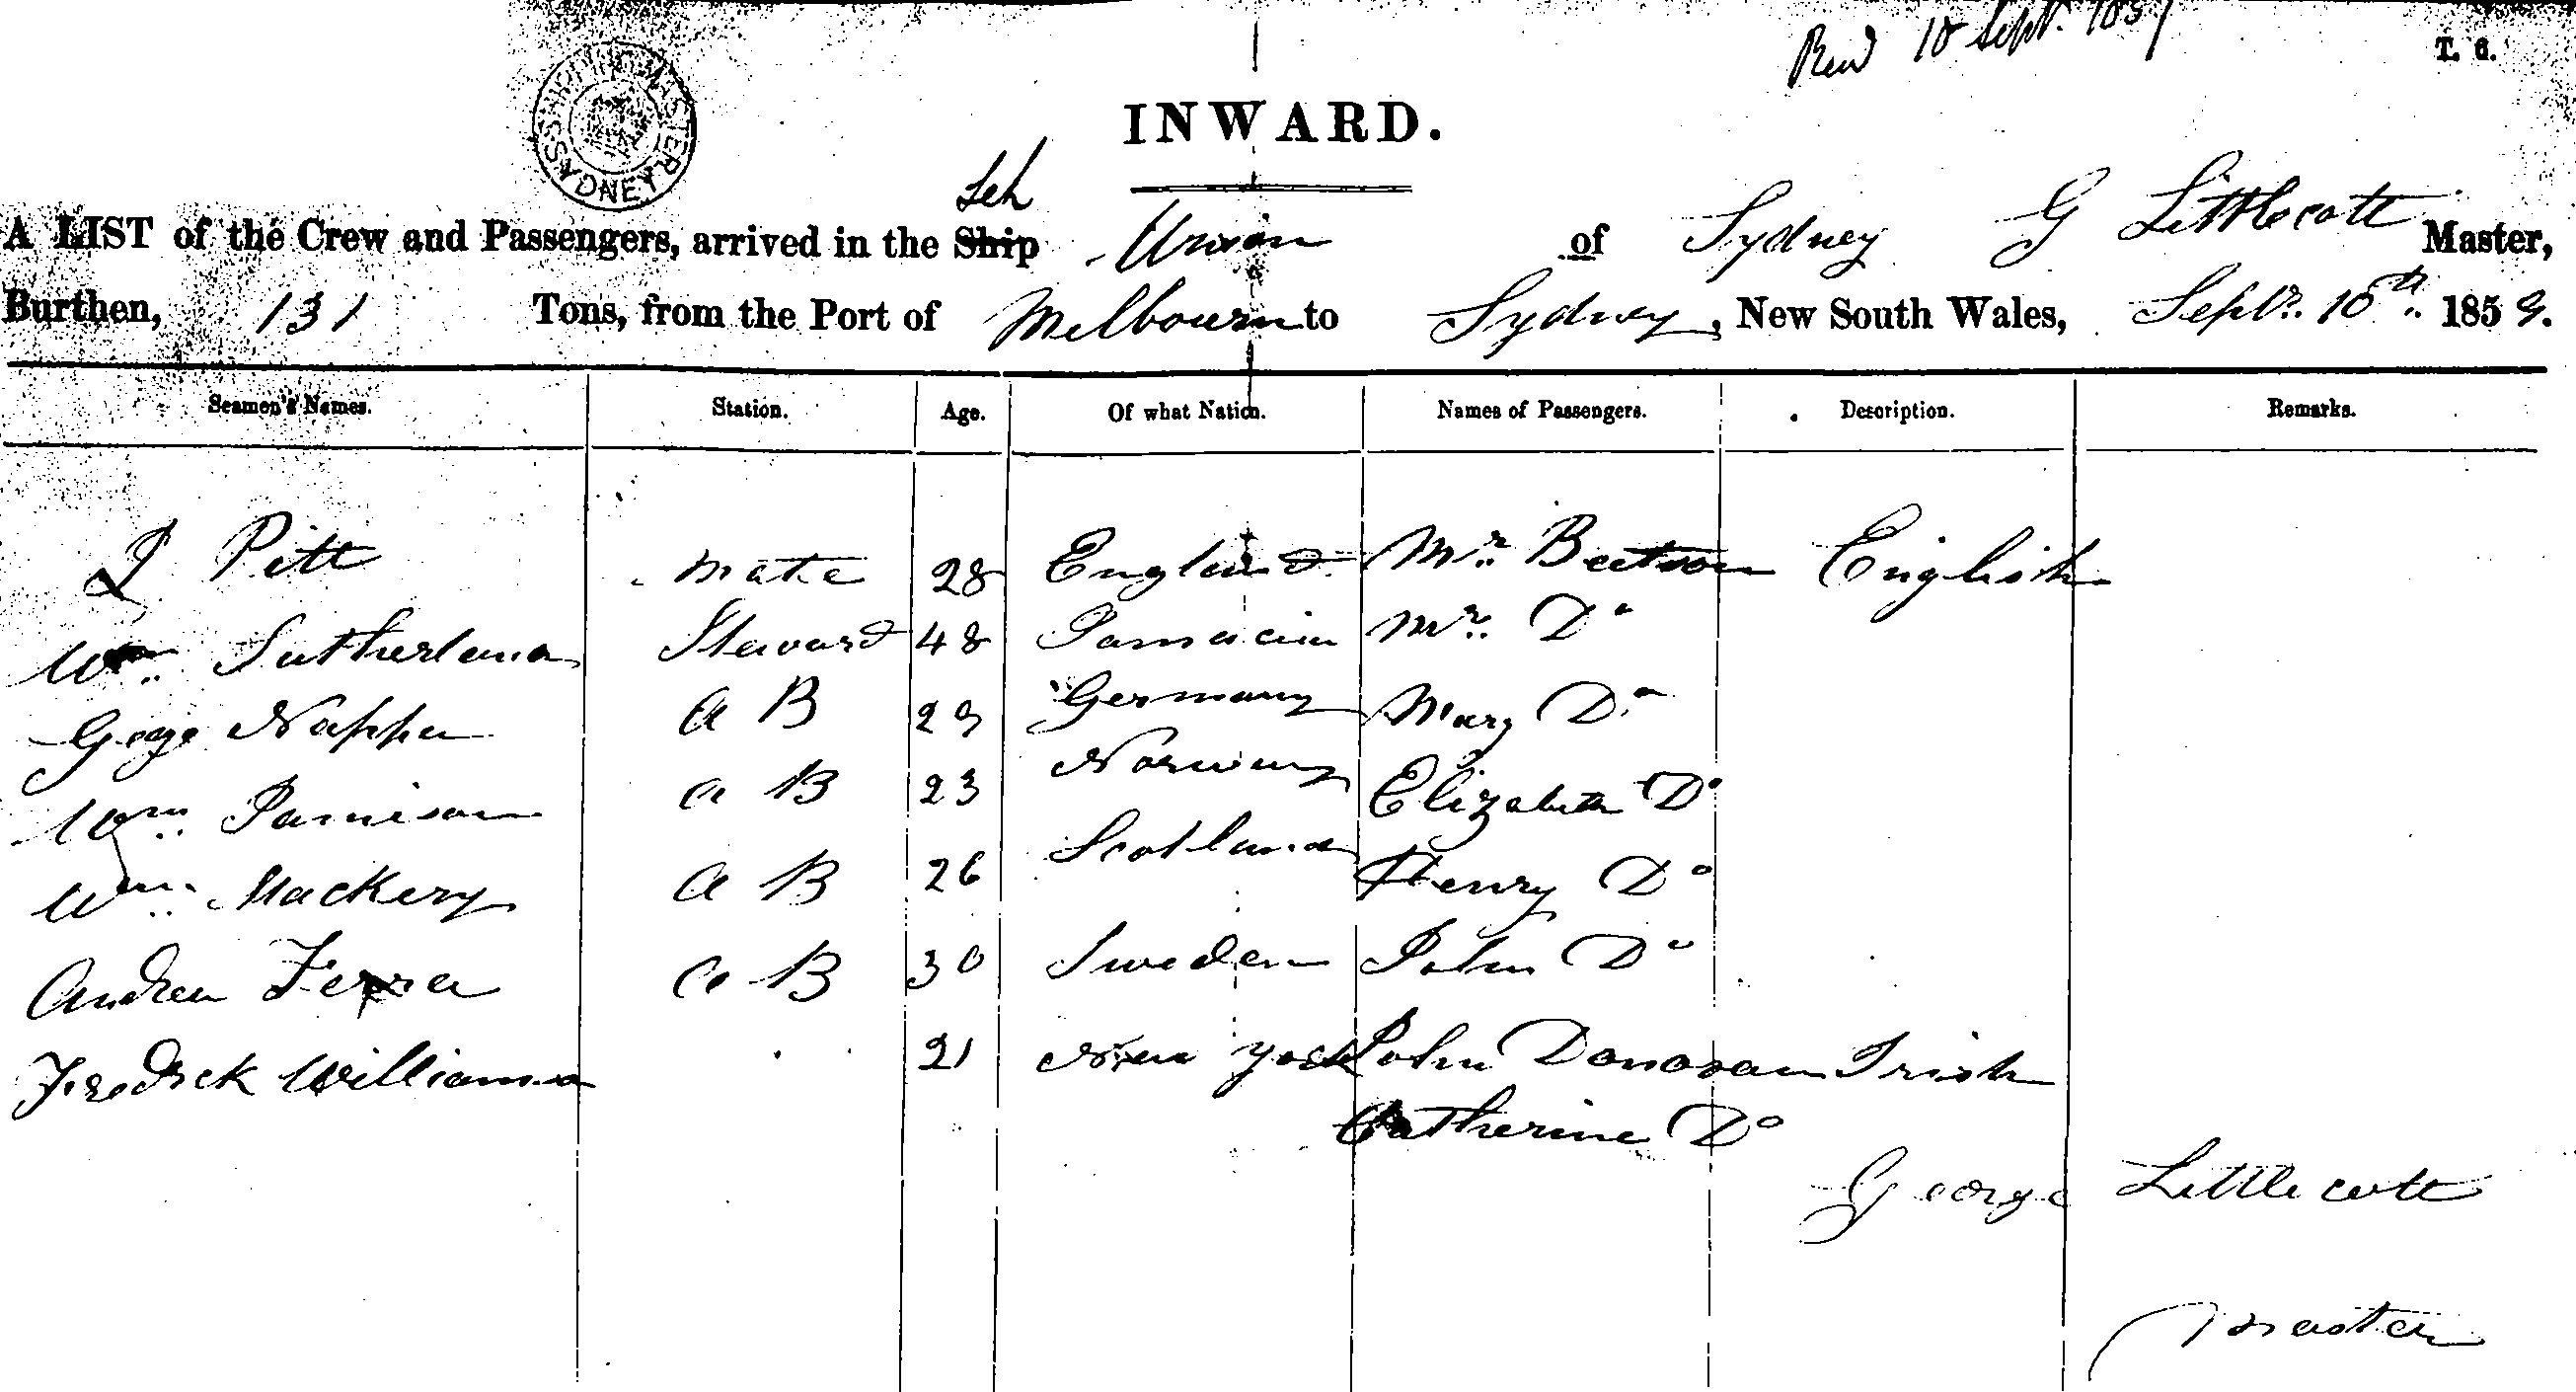 Recd 10 Sept. 1859
T. 6.
SHIPPING MASTERS SYDNEY
INWARD.
Sch
A LIST of the Crew and Passengers, arrived in the Ship Union of Sydney G Littlecott Master,
Burthen, 131 Tons, from the Port of Melbourn to Sydney, New South Wales, Septr. 10th. 1859.
Seamen's Names. Station. Age. Of what Nation. Names of Passengers. Description. Remarks.
Pitt mate 28 England Mr. Beetson English
Wm. Sutherland Steward 48 Jamacia Mr. Do
Geoge Napper a B 29 Germany Mary Do
Wm. Jamison a B 23 Norway Elizabeth Do
Wm. Mackery a B 26 Scotland Henry Do
Andrew a B 30 Sweden John Do
Fredrick Williams 21 New york John Donovan Irish
Catherine Do
George Littlecott
Master